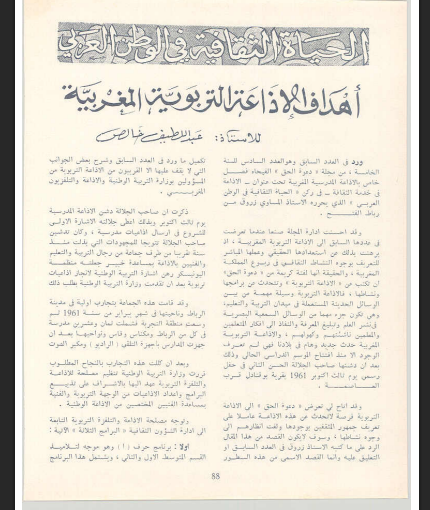 الحياة الثقافية في الوطن العربي
أهداف الإذاعة التربوية المغربية
للأستاذ: عبد اللطيف خالص
ورد في العدد السابق وهو العدد السادس للسنة
الخامسة ، من مجلة « دعوة الحق » الفيحاء فصل
خاص بالاذاعة المدرسية المغربية تحت عنوان ــ الاذاعة
في خدمة الثقافة ــ في ركن « الحياة الثقافية في الوطن
العربي » الذي يحرره الاستاذ المساوي زروق من
رباط الفتح .
وقد احسنت ادارة المجلة صنعا عندما تعرضت
في عددها السابق الى الاذاعة التربوية المغربية ، اذ
برهنت بذلك عن استعدادها الحقيقي وعملها المباشر
للتعريف بوجوه النشاط الثقافي في ربوع المملكة
المغربية ، والحقيقة انها لفتة كريمة من « دعوة الحق »
ان تكتب عن « الاذاعة التربوية » وتتحدث عن برامجها
ونشاطها ، فالاذاعة التربوية وسيلة مهمة من بين
الوسائل الحديثة المستعملة في ميدان التربية والتعليم،
وهي تكون جزء مهما من الوسائل السمعية البصرية
في نشر العلم وتبليغ المعرفة والنفاذ الى افكار المتعلمين
والمغرب حدث جديد وهام في بلادنا فهي لم تعرف
الوجود الا منذ افتتاح الموسم الدراسي الحالي وذلك
بعد ان دشنها صاحب الجلالة الحسن الثاني في حفل
رسمي يوم ثالث اكتوبر 1961 بقرية بوقنادل قرب
العاصمة .
وقد اتاح لي تعرض « دعوة الحق » الى الاذاعة
التربوية فرصة لاتحدث عن هذه الاذاعة عاملا على
تعريف جمهور المثقفين بوجودها ولفت انظارهم الى
وجوه نشاطها ، وسوف لايكون القصد من هذا المقال
الرد على ما كتبه الاستاذ زروق في العدد السابق او
التعليق عليه وانما القصد الاسمى من هذه السطور
تكميل ما ورد في العدد السابق وشرح بعض الجوانب
التي لا يقف عليها الا القريبون من الاذاعة التربوية من
المسؤولين بوزارة التربية الوطنية والاذاعة والتلفزيون
المغربي .
ذكرت ان صاحب الجلالة دشن الاذاعة المدرسية
يوم ثالث اكتوبر وبذلك اعطى جلالته الاشارة الاولى
للشروع في ارسال اذاعيات مدرسية ، وكان تدشين
صاحب الجلالة تتويجا للمجهودات التي بذلت منذ
سنة تقريبا من طرف جماعة من رجال التربية والتعليم
والفنيين بالاذاعة بمساعدة خبير جعلته منظمة
اليونيسكو رهن اشارة التربية الوطنية لانجاز اذاعيات
تربوية بعد ان تقدمت وزارة التربية الوطنية بطلب ذلك
وقد قامت هذه الجماعة بتجارب اولية في مدينة
الرباط وناحيتها في شهر يبراير من سنة 1961 ثم
وسعت منطقة التجربة فشملت ثمان وعشرين مدرسة
في كل من الرباط ومكناس وفاس ونواحيها بعد ان
جهزت المدارس باجهزة التلقي ( الراديو ) ومكبر الصوت
وبعد ان كللت هذه التجارب بالنجاح المطلوب
قررت وزارة التربية الوطنية تنظيم مصلحة للاذاعة
والتلفزة التربوية عهد اليها بالاشراف على تقديم
البرامج واعداد الاذاعيات من الوجهة التربوية والفنية
بمساعدة الفنيين المختصين من الاذاعة الوطنية .
وتوجه مصلحة الاذاعة والتلفزة التربوية التابعة
الى ادارة الشؤون الثقافية « البرامج الثلاثة » الآتية :
اولا : برنامج حرف (أ) وهو موجه لتلاميذ
القسم المتوسط الاول والثاني ، ويشتمل هذا البرنامج
88